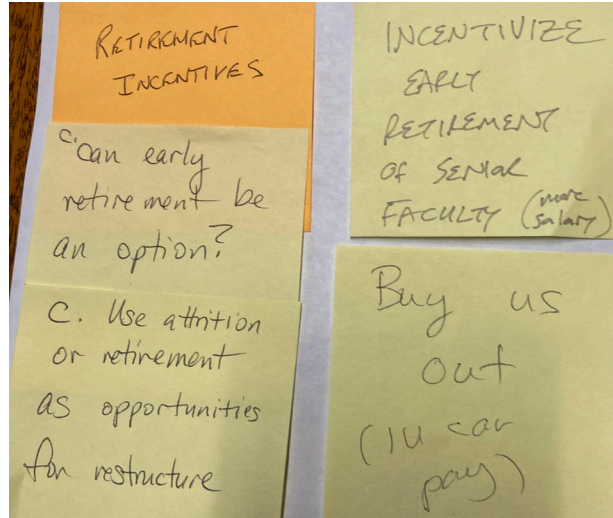 RETIREMENT
INCENTIVES
C. Can early
retirement be
an option?
C. Use attrition
or retirement
as opportunities
for restructure
INCENTIVIZE
EARLY
RETIREMENT
OF SENIOR
FACULTY (more
salary)
Buy us
out
(IU can
pay)